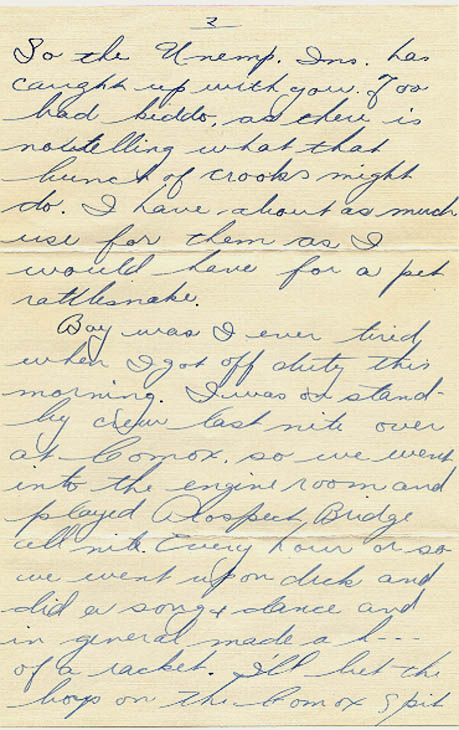 3
So the Unemp. Ins. has
caught up with you. Too
bad kiddo, as there is
no telling what that
bunch of crooks might
do. I have about as much
use for them as I
would have for a pet
rattlesnake.
Boy was I ever tired
when I got off duty this
morning. I was on stand-
by crew last nite over
at Comox, so we went
into the engine room and
played Prospect, Bridge
all nite. Every hour or so
we went up on deck and
did a song & dance and
in general made a h---
of a racket. I'll bet the
boys on the Comox Spit